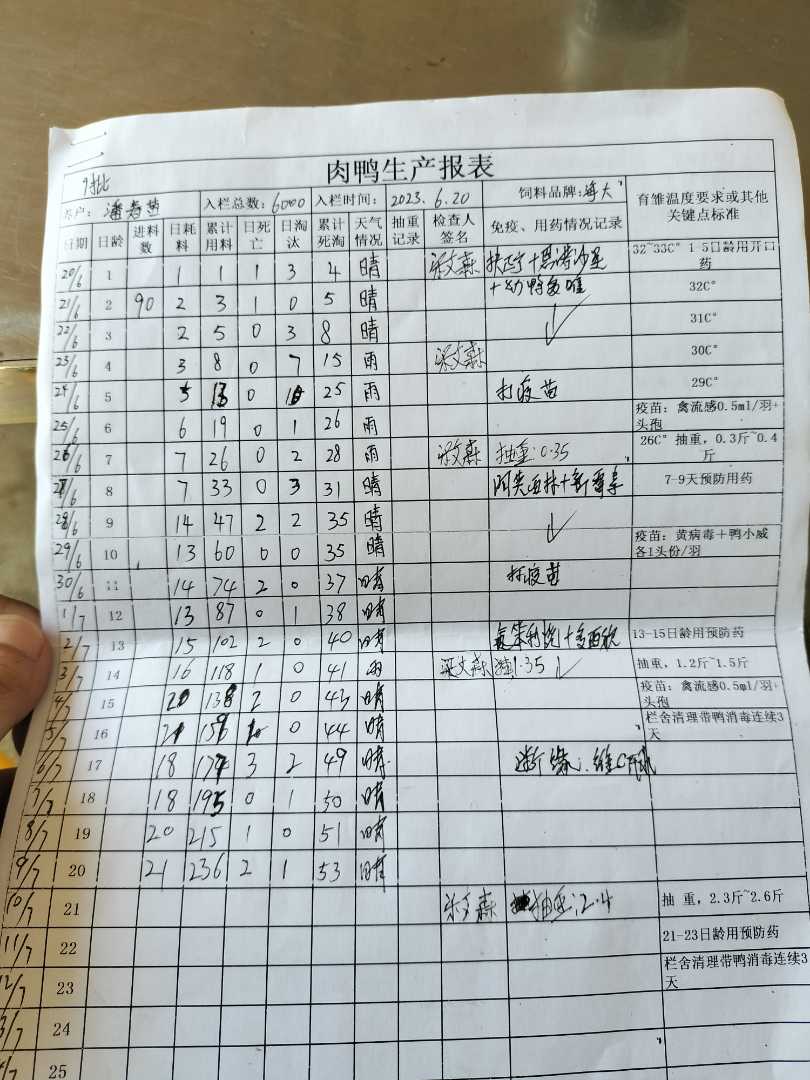 肉鸭生产报表
养户: 潘 入栏总数: 6000 入栏时间: 2023.6.20 饲料品牌: 海大 育雏温度要求或其他关键点标准
日期 日龄 进料数 日耗料 累计用料 日死亡 日淘汰 累计死淘 天气情况 抽重记录 检查人签名 免疫、用药情况记录
20/6 1 1 1 1 3 4 晴 32~33C° 1-5日龄用开口药
21/6 2 90 2 3 1 0 5 晴 32C°
22/6 3 2 5 0 3 8 晴 31C°
23/6 4 3 8 0 7 15 雨 30C°
24/6 5 5 13 0 10 25 雨 打疫苗 29C°
25/6 6 6 19 0 1 26 雨 疫苗: 禽流感0.5ml/羽+头孢
26/6 7 7 26 0 2 28 雨 抽重:0.35 26C° 抽重, 0.3斤~0.4斤
27/6 8 7 33 0 3 31 晴 7-9天预防用药
28/6 9 14 47 2 2 35 晴
29/6 10 13 60 0 0 35 晴 疫苗: 黄病毒+鸭小威各1头份/羽
30/6 11 14 74 2 0 37 晴 打疫苗
1/7 12 13 87 0 1 38 晴
2/7 13 15 102 2 0 40 晴 13-15日龄用预防药
3/7 14 16 118 1 0 41 雨 1.35 抽重, 1.2斤~1.5斤
4/7 15 20 138 2 0 43 晴 疫苗: 禽流感0.5ml/羽+头孢
5/7 16 0 44 晴 栏舍清理带鸭消毒连续3天
6/7 17 18 177 3 2 49 晴
7/7 18 18 195 0 1 50 晴
8/7 19 20 215 1 0 51 晴
9/7 20 21 236 2 1 53 晴
10/7 21 抽重:2.4 抽 重, 2.3斤~2.6斤
11/7 22 21-23日龄用预防药
12/7 23 栏舍清理带鸭消毒连续3天
3/7 24
25